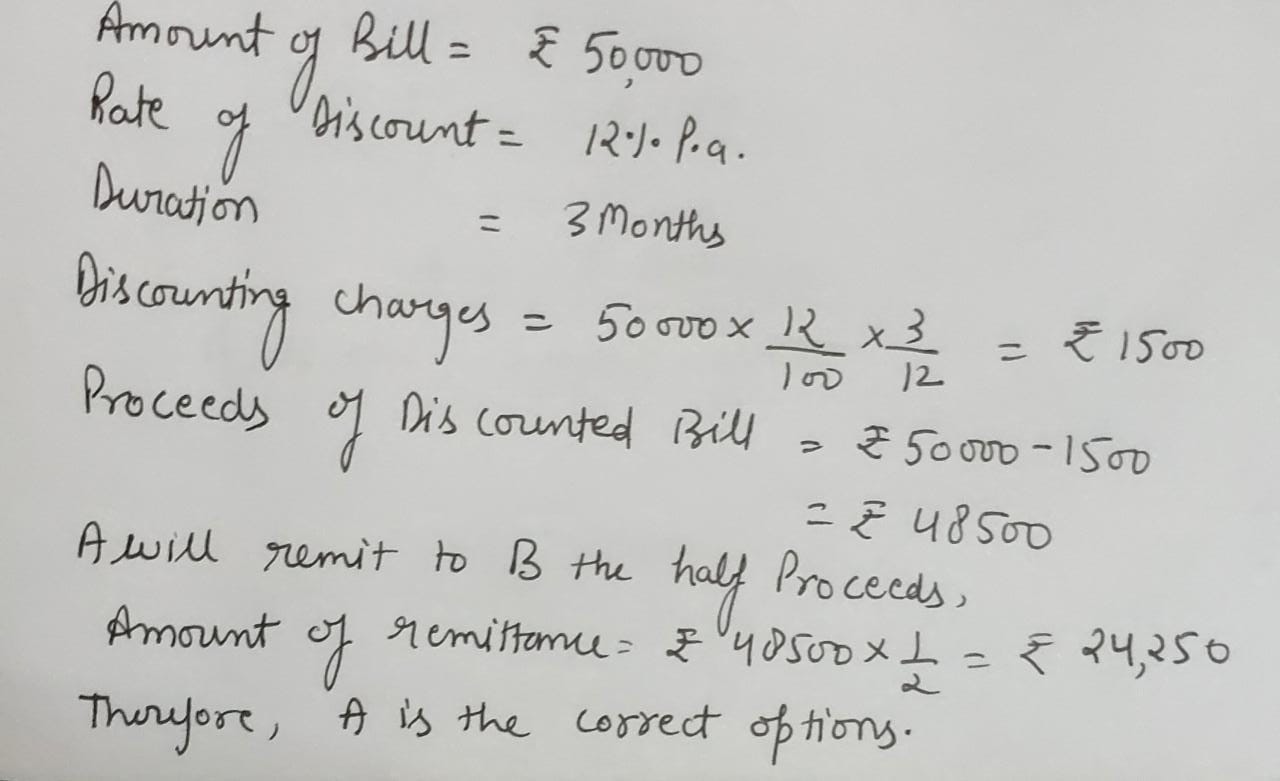 Amount of Bill = ₹ 50,000
Rate of Discount = 12% P.a.
Duration = 3 Months
Discounting charges = 50000 × 12/100 × 3/12 = ₹ 1500
Proceeds of Discounted Bill = ₹ 50000 - 1500
= ₹ 48500
A will remit to B the half Proceeds,
Amount of remittance = ₹ 48500 × 1/2 = ₹ 24,250
Therefore, A is the correct options.